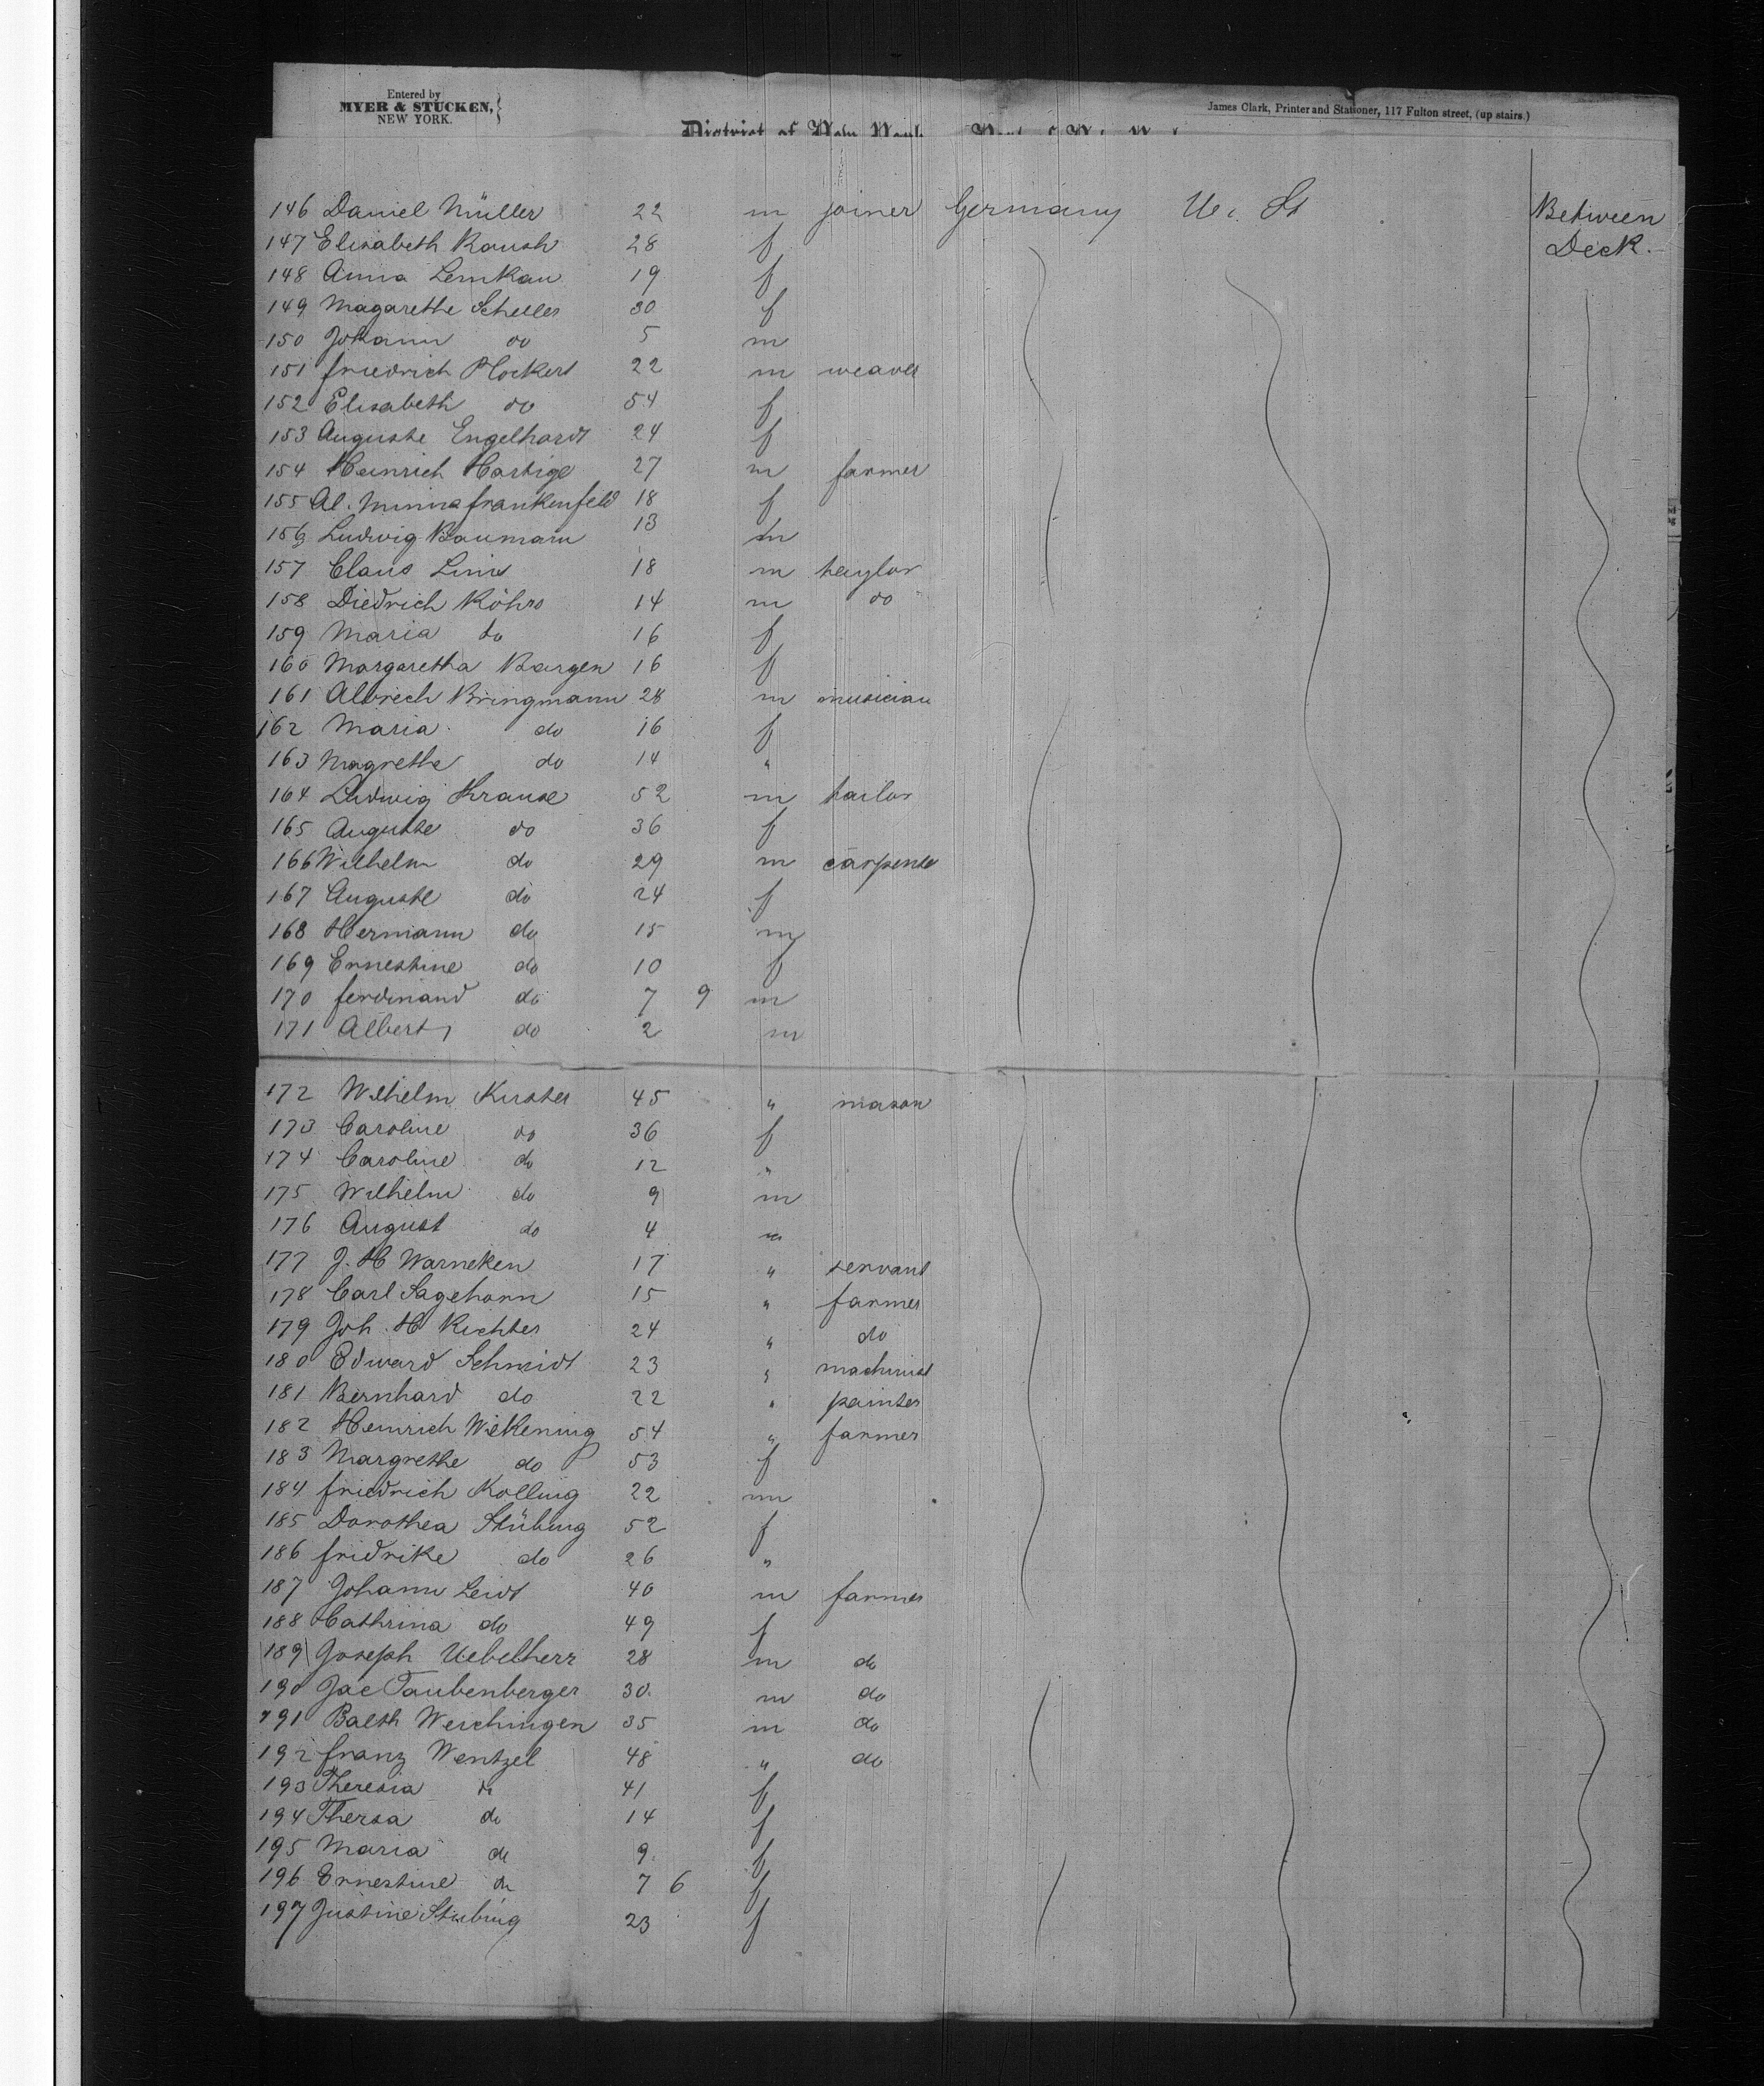 Entered by
MYER & STUCKEN,
NEW YORK.
James Clark, Printer and Stationer, 117 Fulton street, (up stairs.)
District of New York
146 Daniel Müller 22 m joiner Germany U. St Between
147 Elisabeth Raush 28 f Deck.
148 Anna Lemkau 19 f
149 Magarethe Scheller 30 f
150 Johann do 5 m
151 friedrich Plockert 22 m weaver
152 Elisabeth do 54 f
153 Auguste Engelhardt 24 f
154 Heinrich Hartige 27 m farmer
155 Al. Minna frankenfeld 18 f
156 Ludwig Baumann 13 m
157 Claus Lins 18 m taylor
158 Diedrich Röhrs 14 m do
159 Maria do 16 f
160 Margaretha Bargen 16 f
161 Albrech Bringmann 28 m musician
162 Maria do 16 f
163 Magrethe do 14 "
164 Ludwig Krause 52 m tailor
165 Auguste do 36 f
166 Wilhelm do 29 m carpente
167 Auguste do 24 f
168 Hermann do 15 m
169 Ernestine do 10 f
170 ferdinand do 7 9 m
171 Albert do 2 m
172 Wilhelm Kuster 45 " mason
173 Caroline do 36 f
174 Caroline do 12 "
175 Wilhelm do 9 m
176 August do 4 m
177 J. H Warneken 17 " servant
178 Carl Sagehorn 15 " farmer
179 Joh. H Richter 24 " do
180 Edward Schmidt 23 " machinist
181 Bernhard do 22 " painter
182 Heinrich Wilkening 54 " farmer
183 Margrethe do 53 f
184 friedrich Kolling 22 m
185 Dorothea Stübing 52 f
186 fridrike do 26 "
187 Johann Leidt 40 m farmer
188 Cathrina do 49 f
189 Joseph Uebelherr 28 m do
190 Jac Taubenberger 30. m do
191 Balth Weichingen 35 m do
192 franz Wentzel 48 " do
193 Theresia do 41 f
194 Thersa do 14 f
195 Maria do 9 f
196 Ernestine do 7 6 f
197 Justine Stubing 23 f